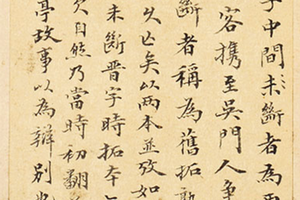 字中間未斷者為
客攜至吳門人爭
斷者稱為舊拓
久亡矣以兩本並攷如
未斷晉字時拓本
自然乃當時初翻
亭故事以為辨別